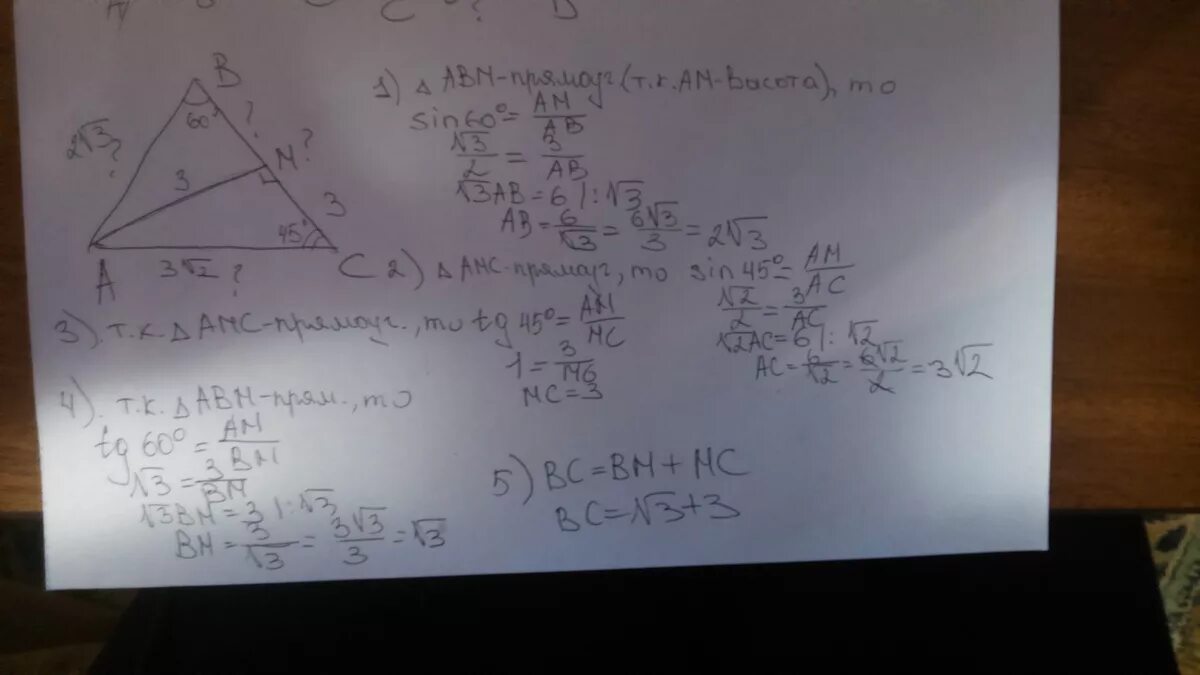 C ?
B
60°
?
2√3
?
M?
3
3
45°
A
3√2
?
C
1) △ ABM-прямоуг(т.к.AM-высота), то
sin60°= AM/AB
√3/2 = 3/AB
√3AB = 6 |:√3
AB = 6/√3 = 6√3/3 = 2√3
2) △ AMC-прямоуг, то sin45°= AM/AC
√2/2 = 3/AC
√2AC = 6 |: √2
AC = 6/√2 = 6√2/2 = 3√2
3). т.к. △ AMC-прямоуг., то tg 45°= AM/MC
1 = 3/MC
MC = 3
4). т.к. △ ABM-прям., то
tg 60° = AM/BM
√3 = 3/BM
√3BM = 3 |:√3
BM = 3/√3 = 3√3/3 = √3
5) BC = BM + MC
BC = √3+3